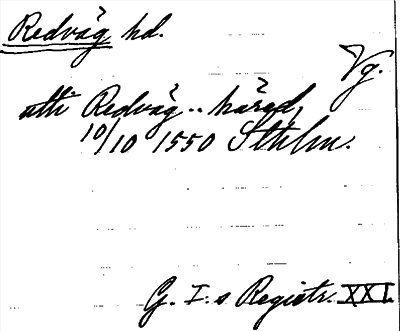 Redväg hd.
Vg.
utti Redväg.. härad,
10/10 1550 Sthlm.
G. I:s Registr. XXI.